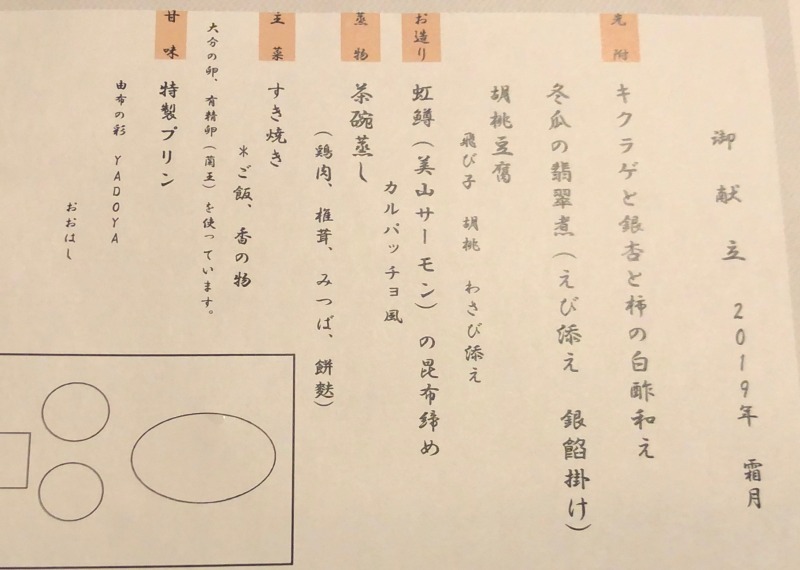 御献立 2019年 霜月
先附
キクラゲと銀杏と柿の白酢和え
冬瓜の翡翠煮(えび添え 銀餡掛け)
胡桃豆腐
飛び子 胡桃 わさび添え
お造り
虹鱒(美山サーモン)の昆布締め
カルパッチョ風
蒸物
茶碗蒸し
(鶏肉、椎茸、みつば、餅麩)
主菜
すき焼き
*ご飯、香の物
大分の卵、有精卵(蘭王)を使っています。
甘味
特製プリン
由布の彩 YADOYA
おおはし